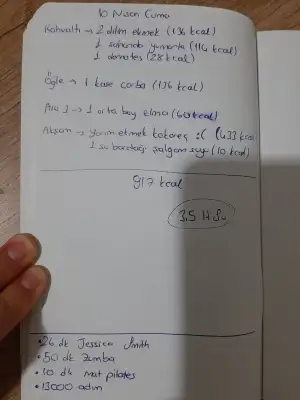 10 Nisan Cuma
Kahvaltı → 2 dilim ekmek (136 kcal)
1 sahanda yumurta (114 kcal)
1 domates (28 kcal)
Öğle → 1 kase çorba (136 kcal)
Ara 1 → 1 orta boy elma (60 kcal)
Akşam → yarım etmek kokoreç :( (433 kcal)
1 su bardağı şalgam suyu (10 kcal)
917 kcal
3.5 lt Su
• 26 dk Jessica Smith
• 50 dk Zumba
• 10 dk mat pilates
• 13000 adım